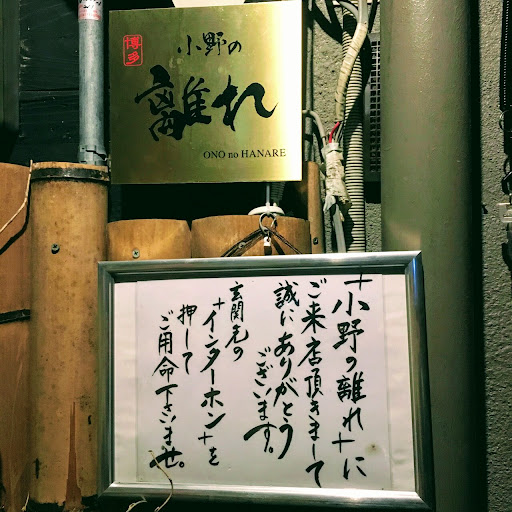 博多
小野の
離れ
ONO no HANARE
+小野の離れ+に
ご来店頂きまして
誠にありがとう
ございます。
玄関先の
+インターホン+を
押して
ご用命下さいませ。